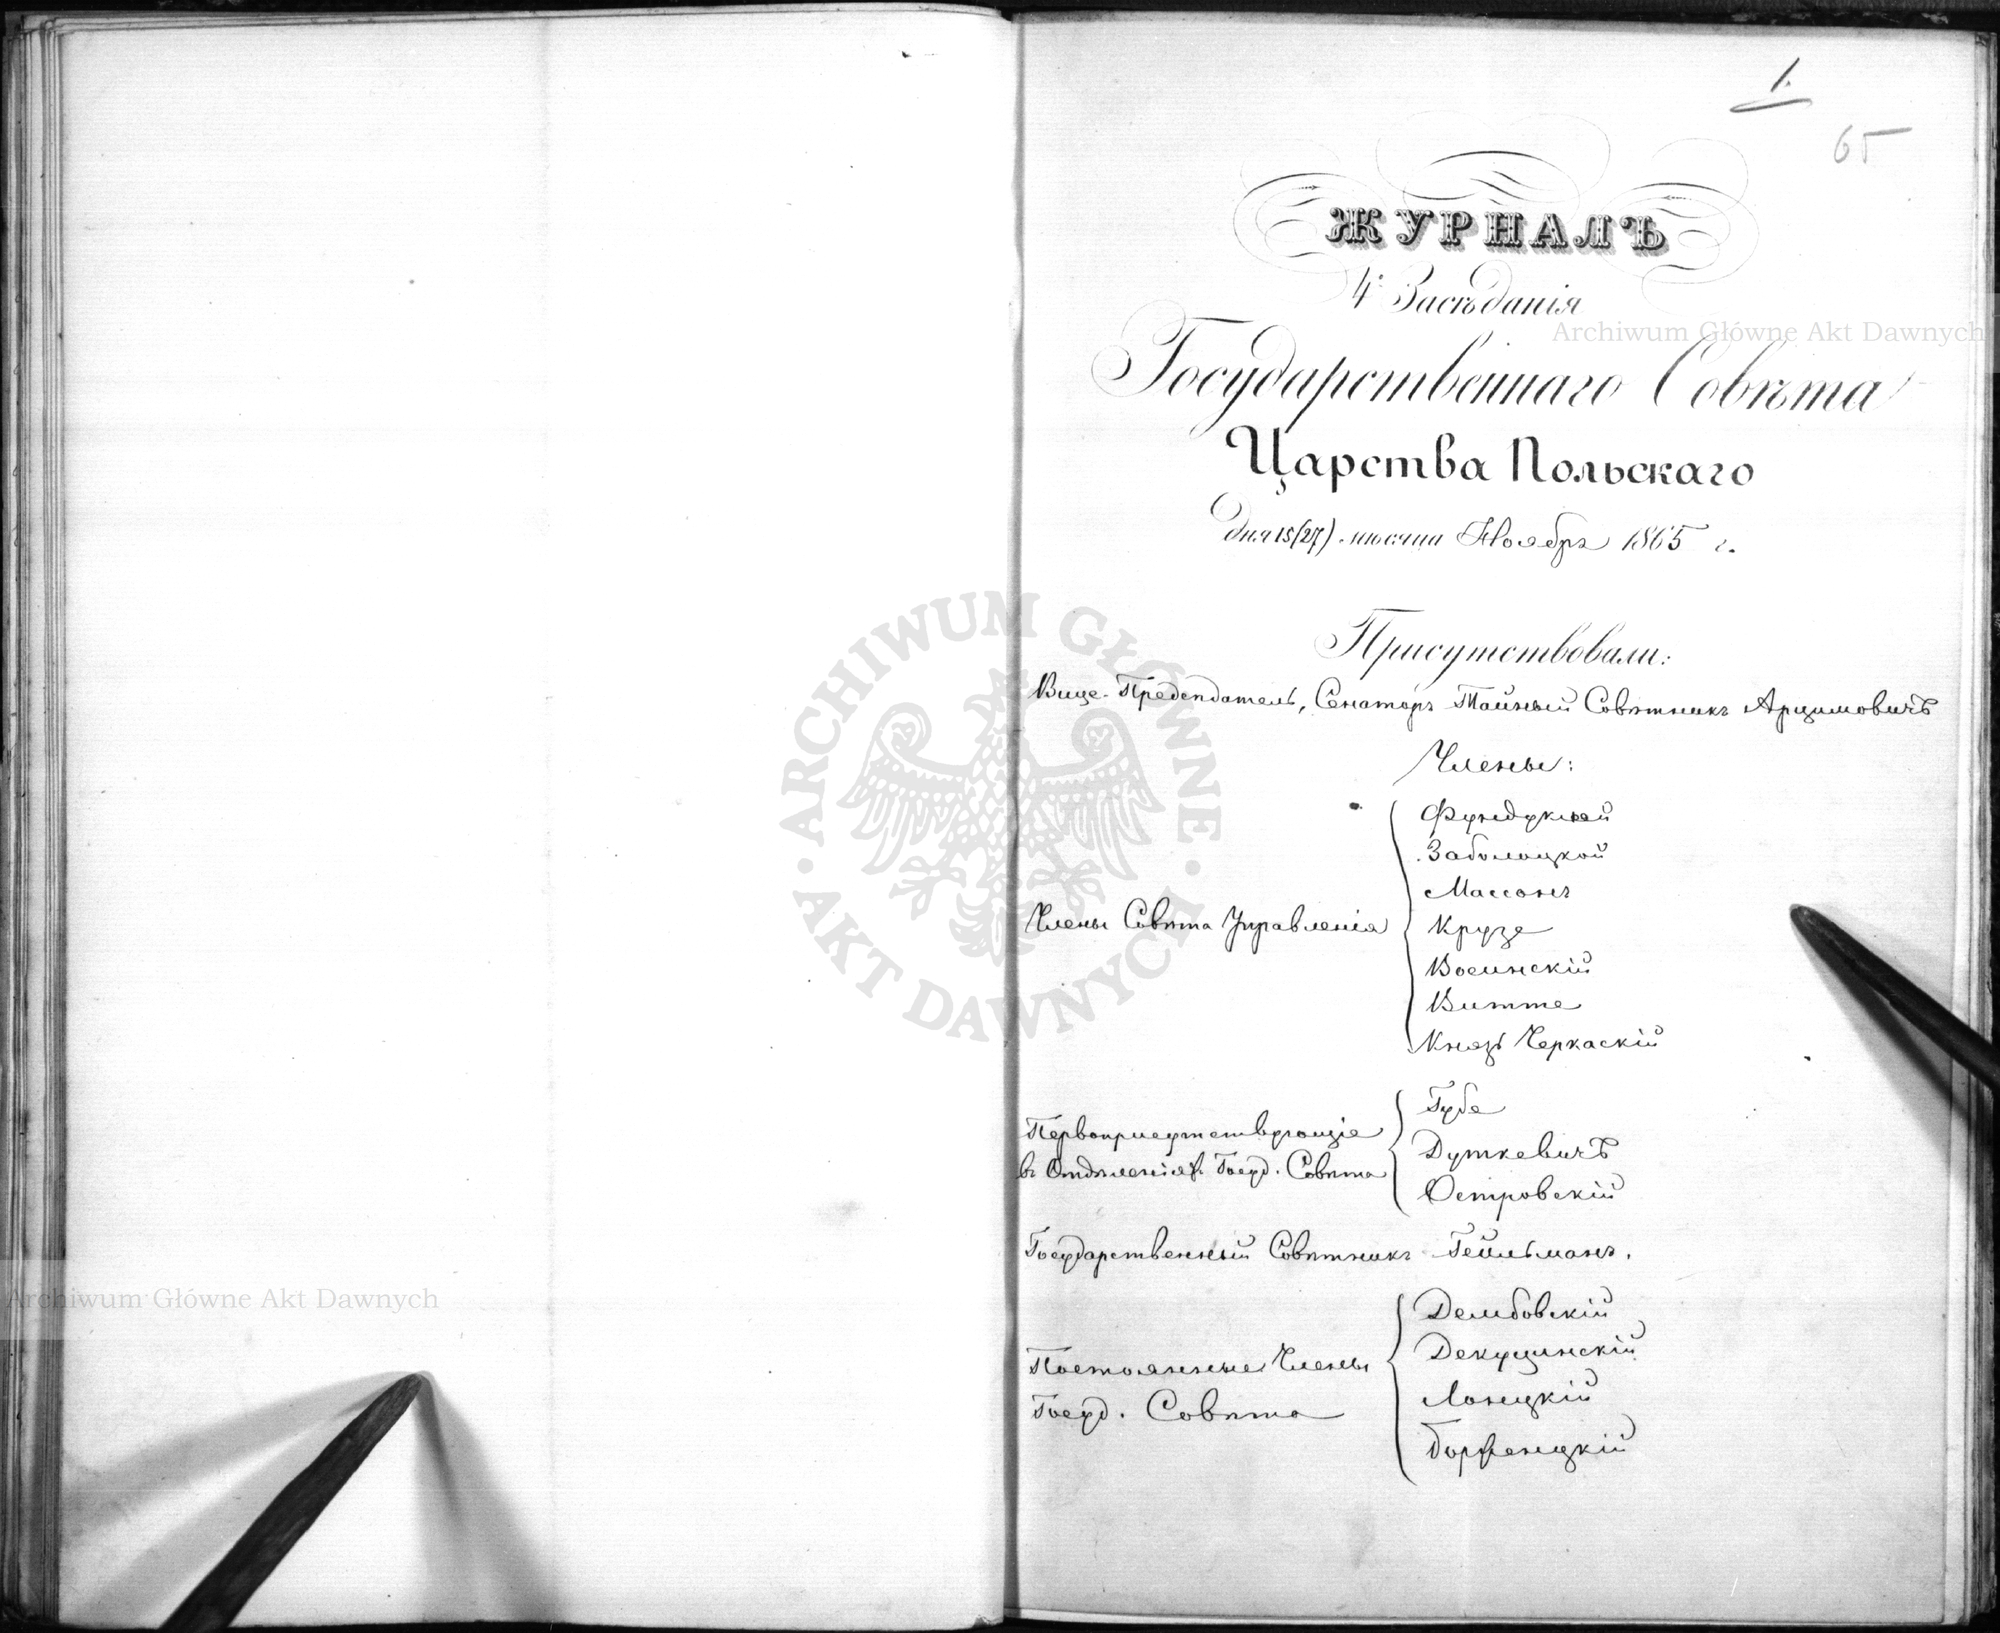 1.
65
ЖУРНАЛЪ
4º Засѣданія
Государственнаго Совѣта
Царства Польскаго
дня 15 (27) мѣсяца Ноября 1865 г.
Присутствовали:
Вице-Предсѣдатель, Сенаторъ Тайный Совѣтникъ Арцимовичъ
Члены:
Члены Совѣта Управленія
Фундуклей
Заболоцкой
Массонъ
Крузе
Воеинскій
Витте
Князь Черкаскій
Первоприсутствующіе
въ Отдѣленіяхъ Госуд. Совѣта
Губе
Дуткевичъ
Островскій
Государственный Совѣтникъ Гейльманъ.
Постоянные Члены
Госуд. Совѣта
Дембовскій
Декуцинскій
Лонцкій
Archiwum Główne Akt Dawnych
Archiwum Główne Akt Dawnych
ARCHIWUM GŁÓWNE · AKT DAWNYCH ·